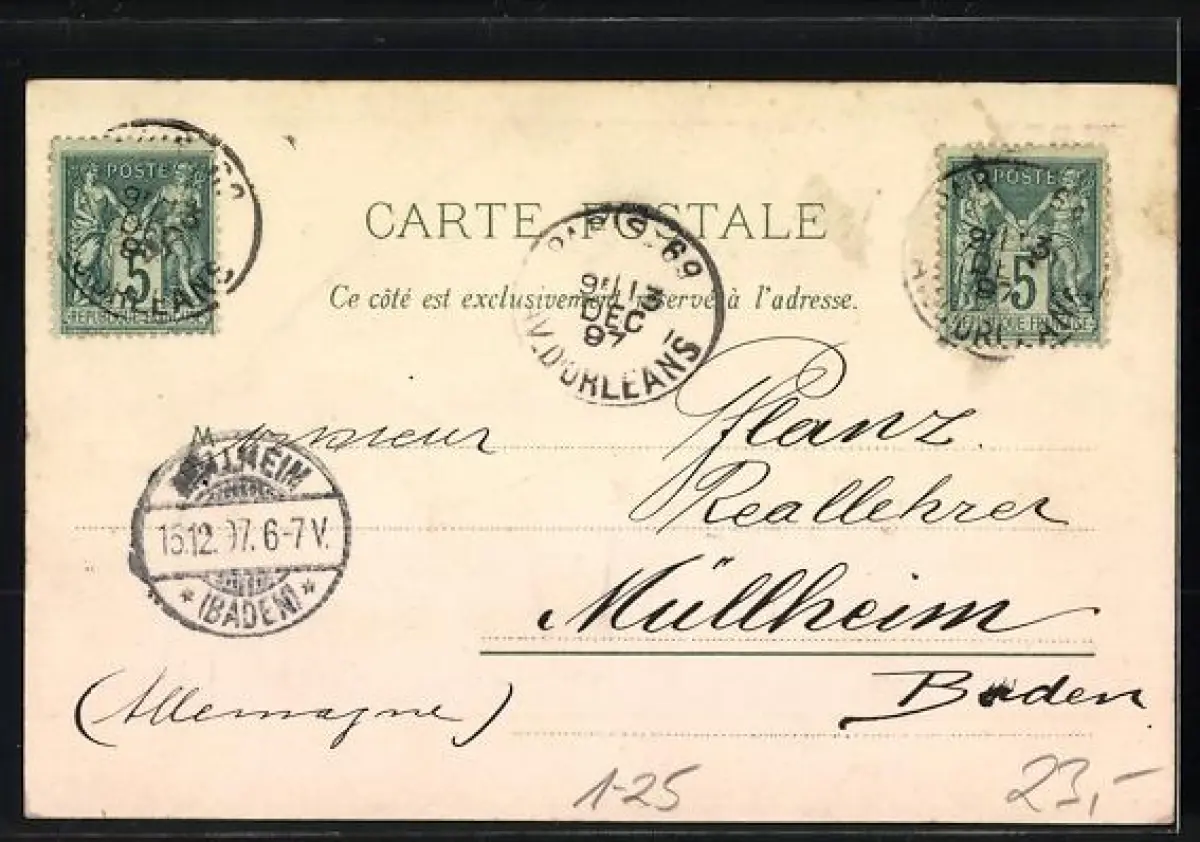 POSTE
5
REPUBLIQUE FRANÇAISE
POSTE
5
REPUBLIQUE FRANÇAISE
CARTE POSTALE
Ce côté est exclusivement réservé à l'adresse.
PARIS - 69
9E 13
DEC
97
AV. D'ORLEANS
Monsieur Pflanz.
Reallehrer
Müllheim
Baden
(Allemagne)
MÜLLHEIM
15.12.97. 6-7 V.
* (BADEN) *
1-25
23,-